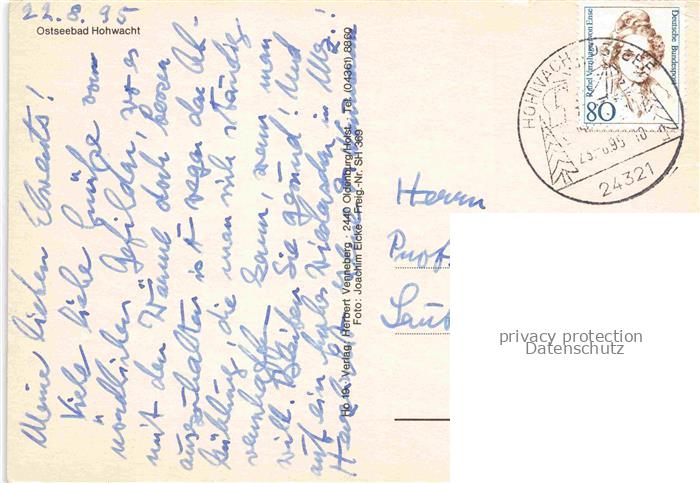 22.8.95
Ostseebad Hohwacht
Meine lieben Ebverts!
Viele liebe Grüße vom
nördlichen Gefilden, wo es
mit der Wärme doch besser
auszuhalten ist wegen der Ab-
kühlung, die man sich ständig
verschaffen kann, wenn man
will. Bleiben Sie gesund! Und
auf ein frohes Wiedersehen in Mg.!
Ho 19 · Verlag: Herbert Venneberg · 2440 Oldenburg/Holst. · Tel. (04361) 8860
Foto: Joachim Eicke · Freig.-Nr. SH 369
Rahel Varnhagen von Ense
Deutsche Bundespost
80
HOHWACHT
24321
Herrn
Prof.
privacy protection
Datenschutz